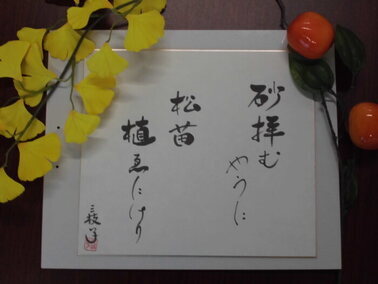 砂拝む
やうに
松苗
植ゑにけり
三枝子